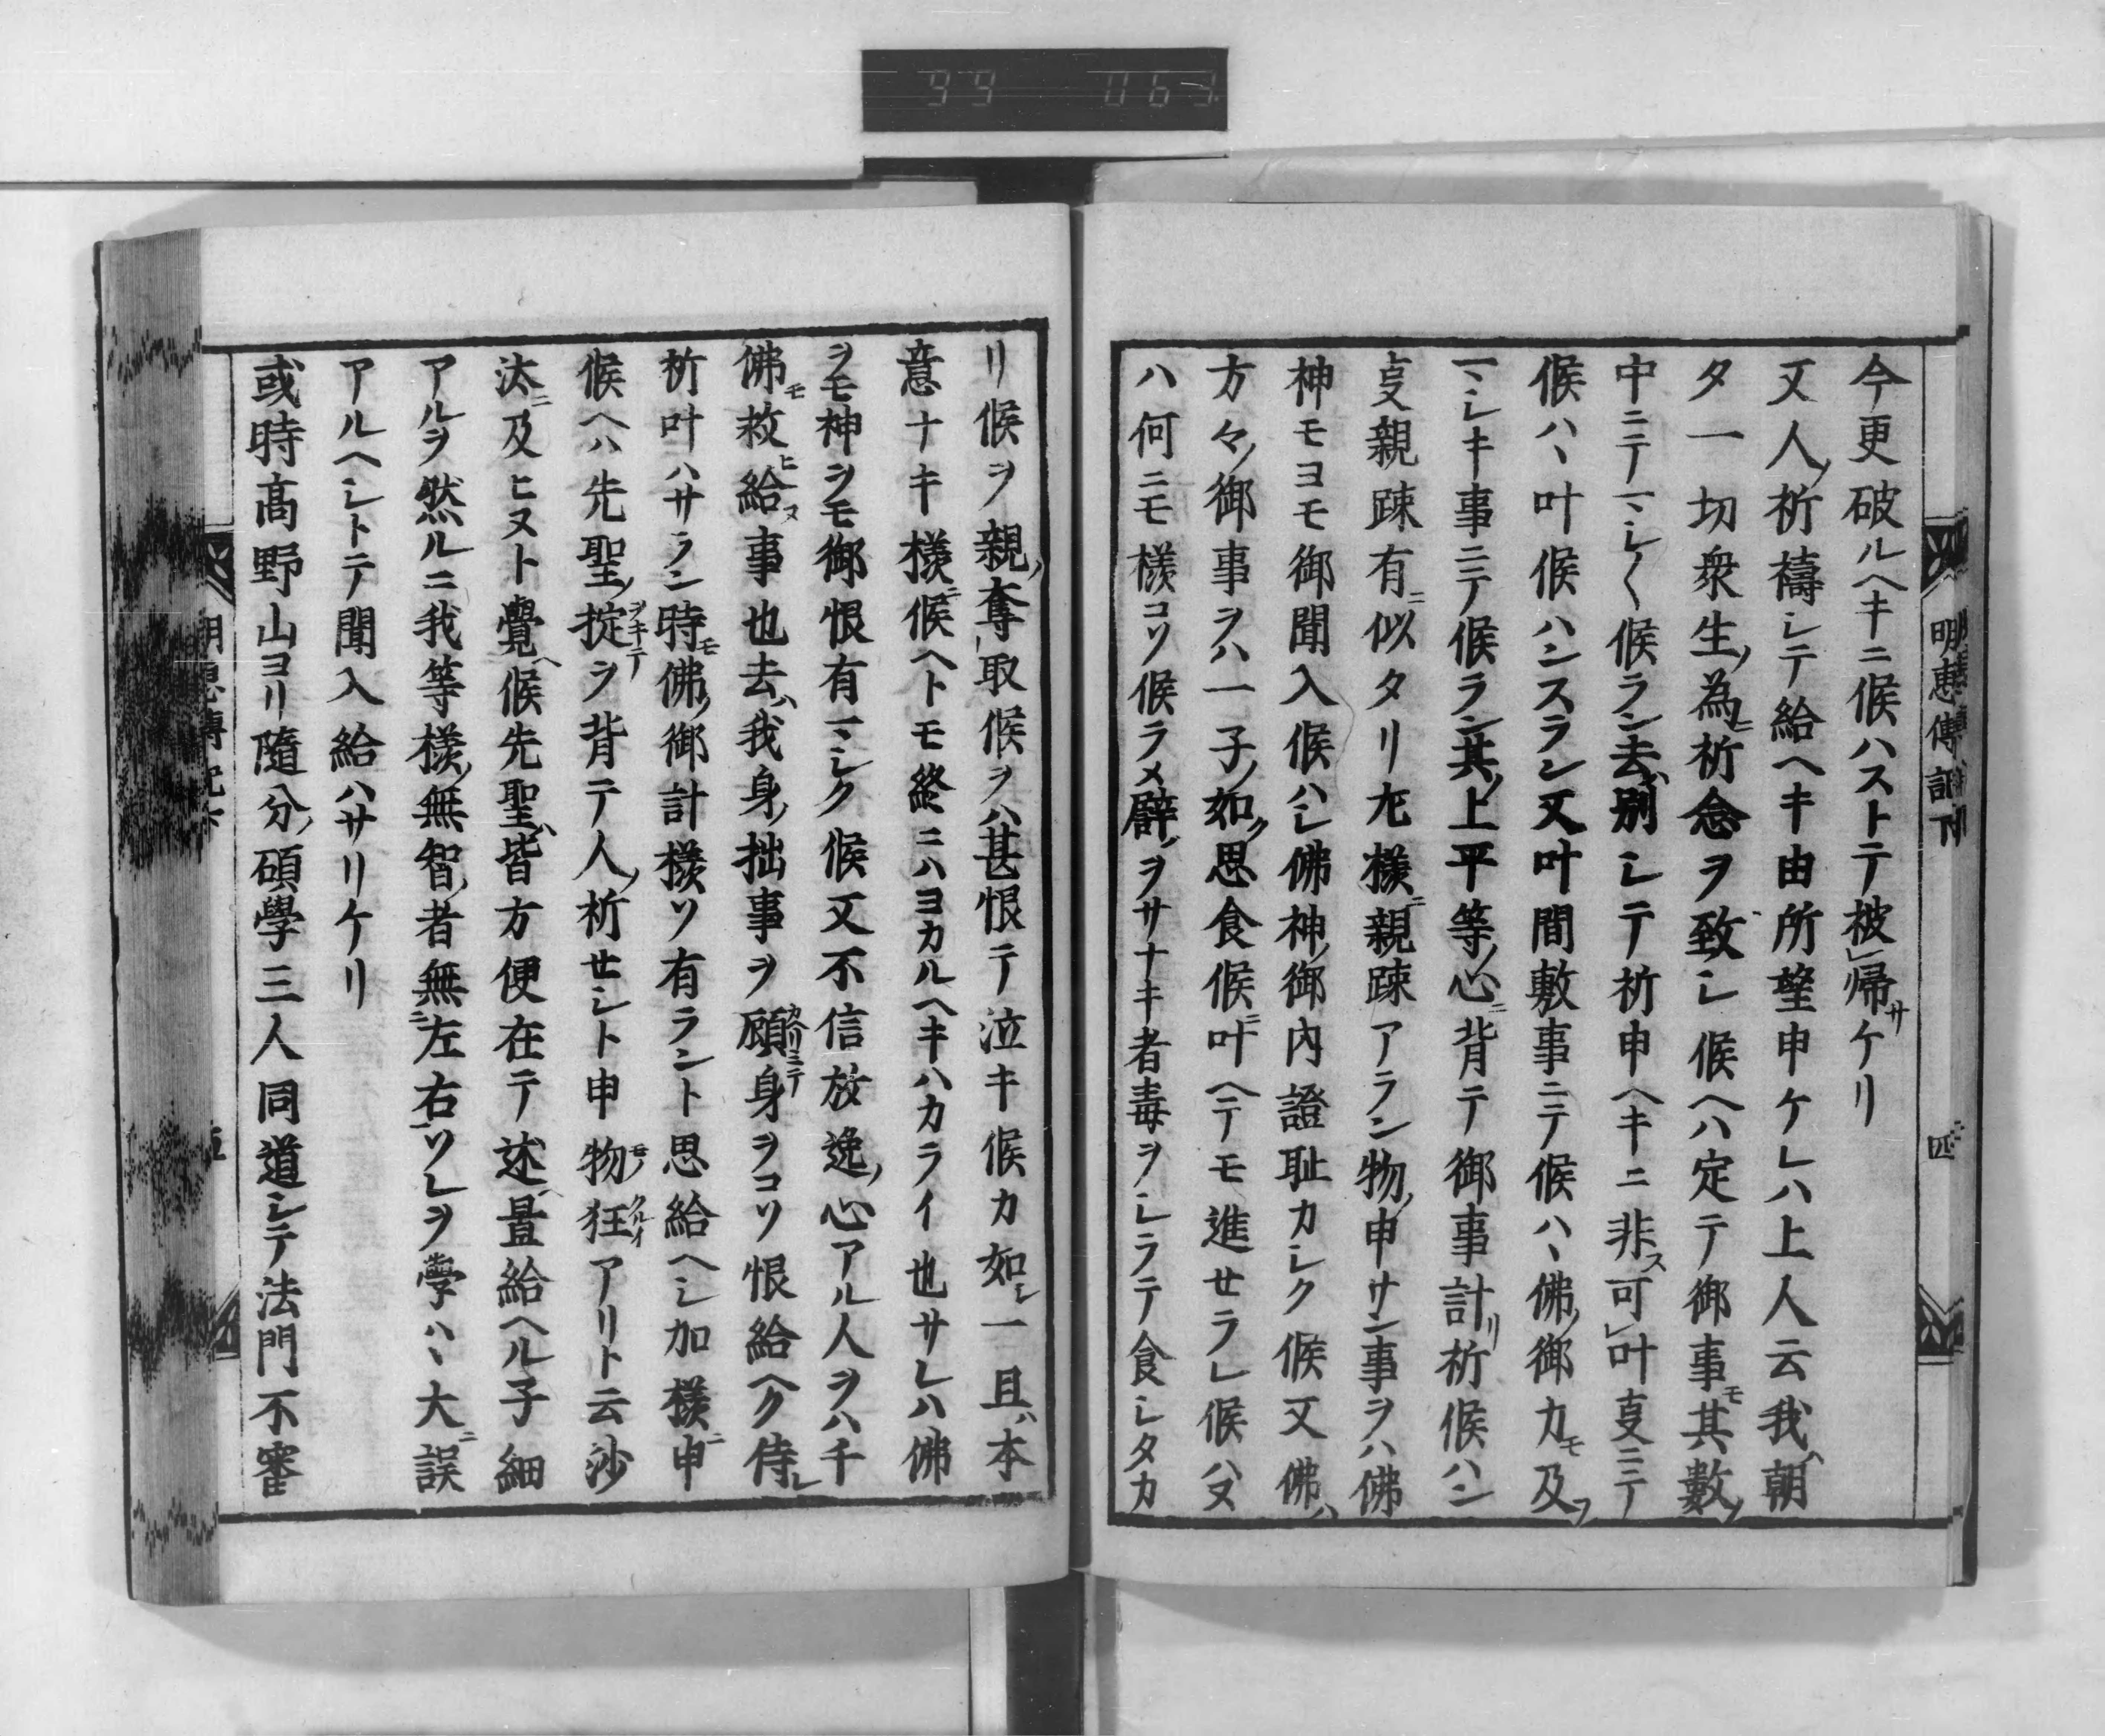 99 063
明恵傳記下
四
今更破ルヘキニ候ハストテ被帰サケリ
又人ノ祈禱シテ給ヘキ由所望申ケレハ上人云我ハ朝
夕一切衆生ノ為ニ祈念ヲ致シ候ヘハ定テ御事モ其數ノ
中ニテマシ〱候ラン去ハ別シテ祈申ヘキニ非ス可叶叓ニテ
候ハヽ叶候ハンスラン又叶間敷事ニテ候ハヽ佛ノ御力モ及フ
マシキ事ニテ候ラン其ノ上平等ノ心ニ背テ御事計リ祈候ハン
叓親踈有ニ似タリ左樣ニ親踈アラン物ノ申サン事ヲハ佛
神モヨモ御聞入候ハシ佛神ノ御內證耻カシク候又佛ハ
方々ノ御事ヲハ一子ノ如ク思食候ニ叶ヘテモ進セラレ候ハヌ
ハ何ニモ樣コソ候ラメ譬ハヲサナキ者毒ヲシラテ食シタカ
リ候ヲ親ノ奪取候ヲハ甚恨テ泣キ候カ如シ一旦ハ本
意ナキ樣ニ候ヘトモ終ニハヨカルヘキハカライ也サレハ佛
ヲモ神ヲモ御恨有マシク候又不信放逸ノ心アル人ヲハ千
佛モ救ヒ給ヌ事也去ハ我身ノ拙事ヲ顧カヘリミテ身ヲコソ恨給ヘク侍レ
祈叶ハサラン時モ佛ノ御計樣ソ有ラント思給ヘシ加樣ニ申
候ヘハ先聖ノ掟ヲキテヲ背テ人ノ祈セシト申物モノ狂クルイアリト云沙
汰ニ及ヒヌト覺ヘ候先聖ハ皆方便在テ述置給ヘル子細
アルヲ然ルニ我等樣ノ無智ノ者無ニ左右ソレヲ學ハヽ大ニ誤
アルヘシトテ聞入給ハサリケリ
或時高野山ヨリ隨分ノ碩學三人同道シテ法門不審